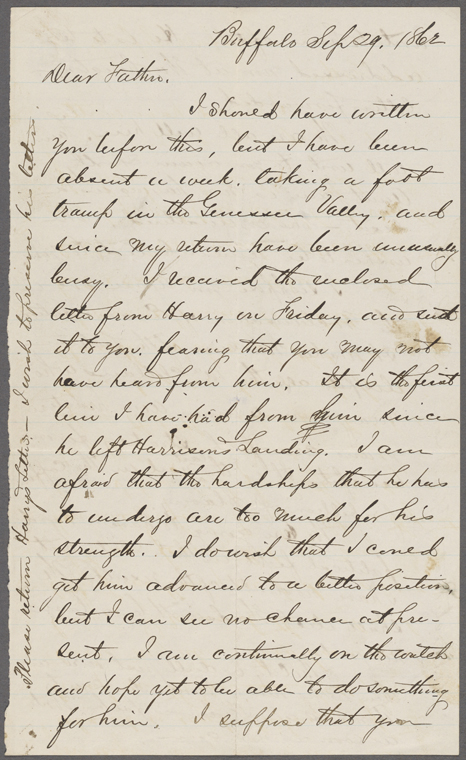 Buffalo Sep 29. 1862
Dear Father.
I should have written
you before this, but I have been
absent a week. taking a foot
tramp in the Genessee Valley. and
since my return have been unusually
busy. I received the enclosed
letter from Harry on Friday. and send
it to you. fearing that you may not
have heard from him. It is the first
line I have had from him since
he left Harrisons Landing. I am
afraid that the hardships that he has
to undergo are too much for his
strength. I do wish that I could
get him advanced to a better position.
but I can see no chance at pre-
sent. I am continually on the watch
and hope yet to be able to do something
for him. I suppose that you
Please return Harry's letter. - I wish to preserve his letters.